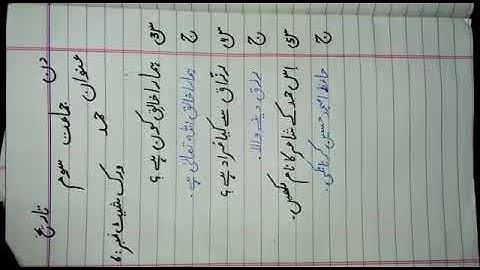 دن تاریخ
جماعت سوم
عنوان حمد
ورک شیٹ نمبر:
س ہمارا خالق کون ہے؟
ج ہمارا خالق اللہ تعالیٰ ہے۔
س رزاق سے کیا مراد ہے؟
ج رزق دینے والا۔
س اس حمد کے شاعر کا نام لکھیں۔
ج حافظ امجد حسین کرناٹکی